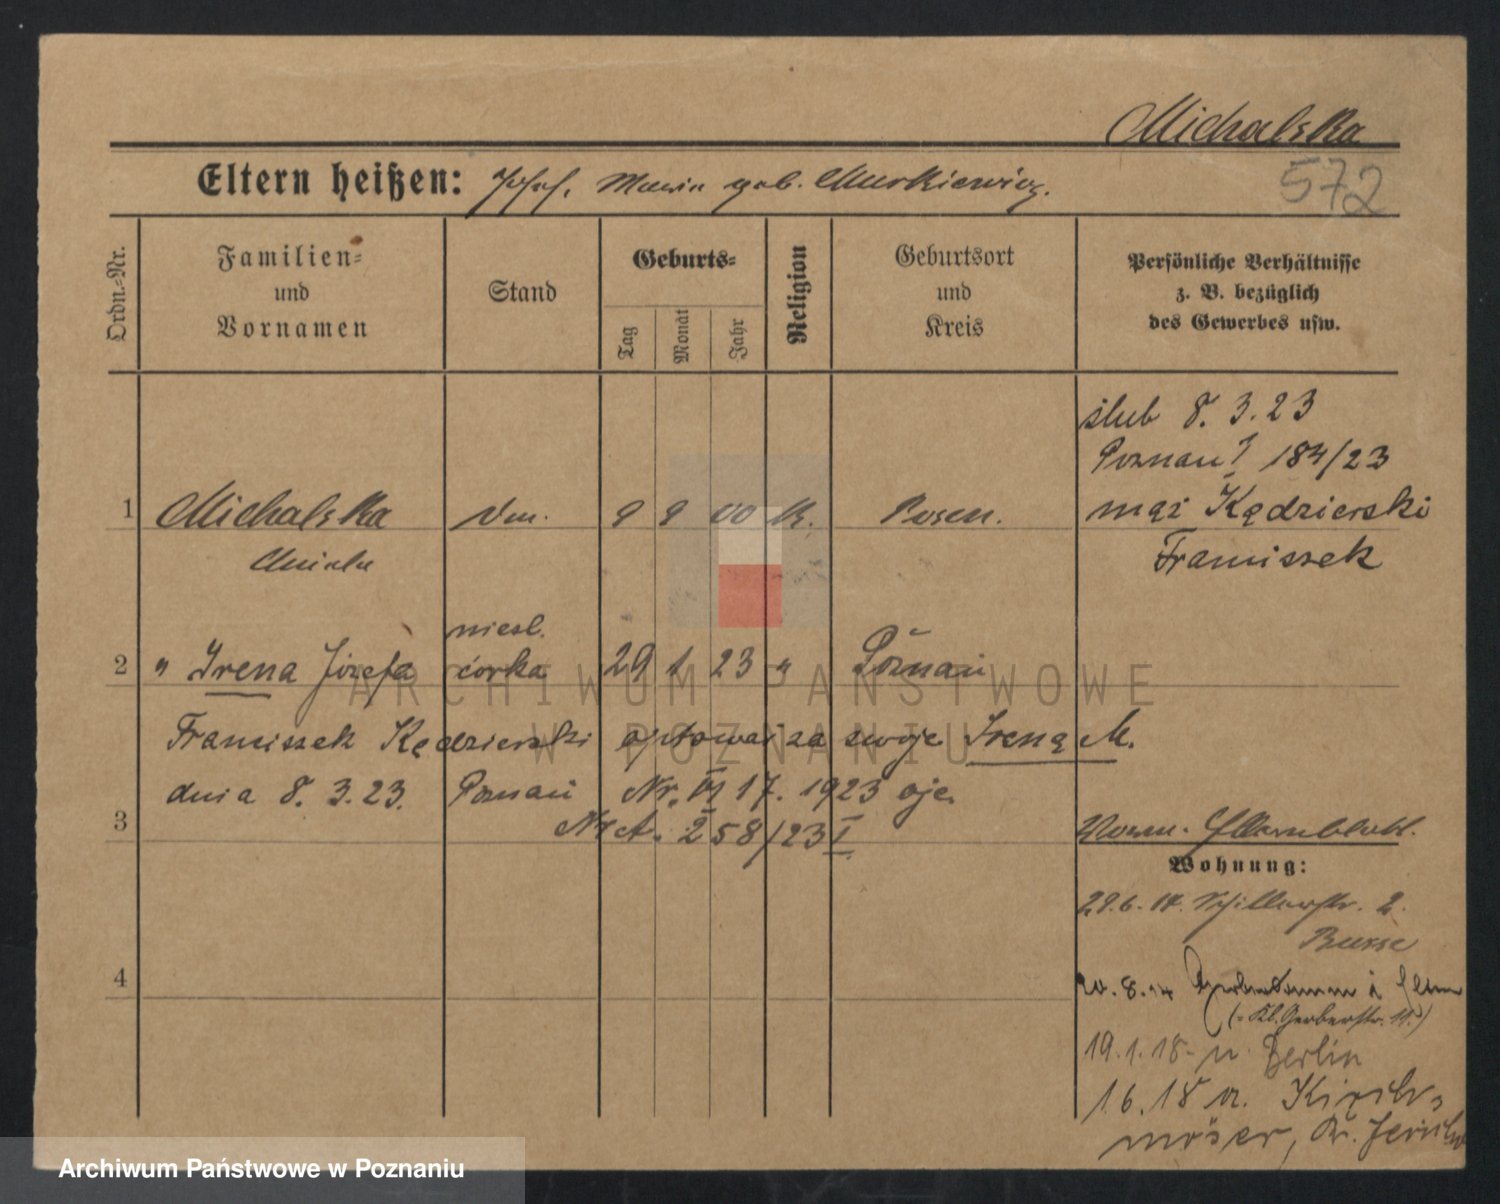 Michalska
572
Eltern heißen: Josef, Maria geb. Murkiewicz.
Ordn.-Nr.
Familien-
und
Vornamen
Stand
Geburts-
Tag
Monat
Jahr
Religion
Geburtsort
und
Kreis
Persönliche Verhältnisse
z. B. bezüglich
des Gewerbes usw.
ślub 8. 3. 23
Poznań 184/23
1 Michalska 9 9 00 K. Posen. mąż Kędzierski
Franciszek
niesl.
2 " Irena Józefa córka 29 1 23 " Poznań
Franciszek Kędzierski za swoje Irenę M.
dnia 8. 3. 23. Poznań Nr. 17. 1923
3
258/23 I
Wohnung:
28.6.14. Schillerstr. 2.
Busse
4
20.8.14
(= Kl. Gerberstr. 11.)
19.1.18 n. Berlin
1.6.18 n. Kirch-
möser, Kr.
ARCHIWUM PAŃSTWOWE
W POZNANIU
Archiwum Państwowe w Poznaniu